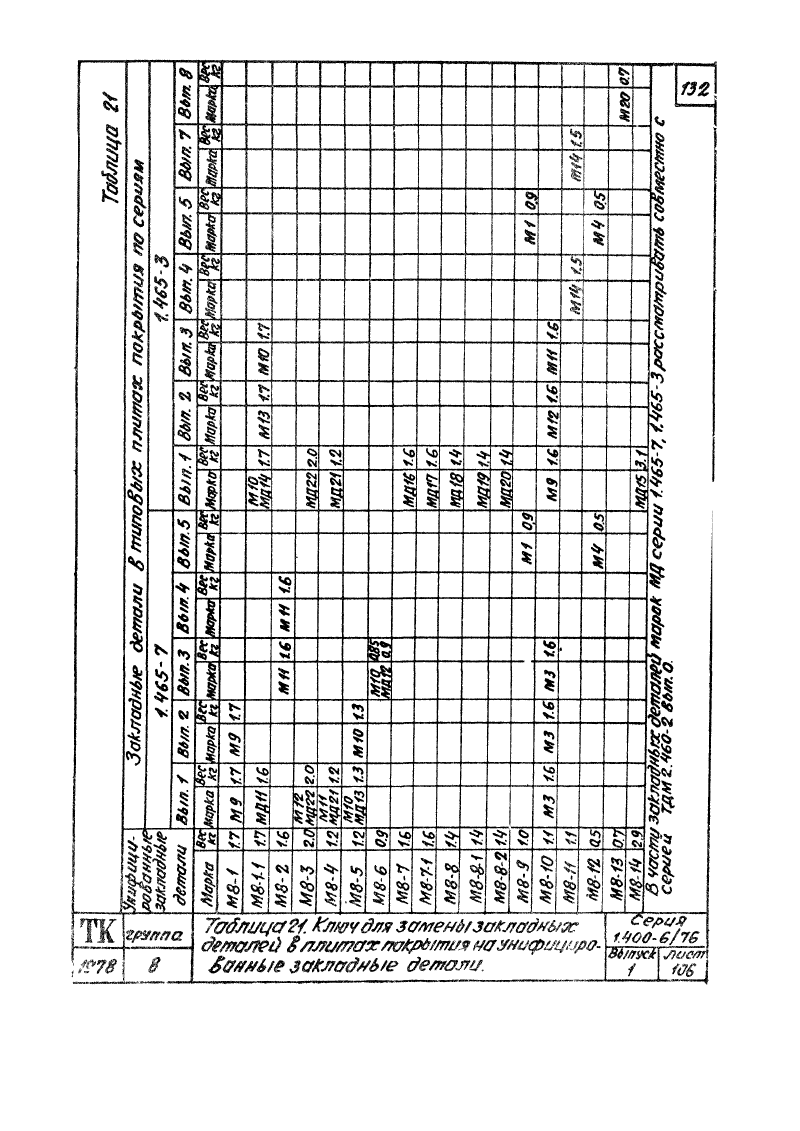 Таблица 21
Закладные детали в типовых плитах покрытия по сериям
Унифици-рованные закладные детали | 1.465-7 | 1.465-3
Вып. 1 | Вып. 2 | Вып. 3 | Вып. 4 | Вып. 5 | Вып. 1 | Вып. 2 | Вып. 3 | Вып. 4 | Вып. 5 | Вып. 7 | Вып. 8
Марка | Вес кг | Марка | Вес кг | Марка | Вес кг | Марка | Вес кг | Марка | Вес кг | Марка | Вес кг | Марка | Вес кг | Марка | Вес кг | Марка | Вес кг | Марка | Вес кг | Марка | Вес кг | Марка | Вес кг | Марка | Вес кг
М8-1 | 1.7 | М9 | 1.7 | М9 | 1.7
М8-1.1 | 1.7 | МД11 | 1.6 | М10 МД14 | 1.7 | М13 | 1.7 | М10 | 1.7
М8-2 | 1.6 | М11 | 1.6 | М11 | 1.6
М8-3 | 2.0 | М12 МД22 | 2.0 | МД22 | 2.0
М8-4 | 1.2 | М11 МД21 | 1.2 | МД21 | 1.2
М8-5 | 1.2 | М10 МД13 | 1.3 | М10 | 1.3
М8-6 | 0.9 | М10 | 0.85 | МД12 | 0.9
М8-7 | 1.6 | МД16 | 1.6
М8-7.1 | 1.6 | МД17 | 1.6
М8-8 | 1.4 | МД18 | 1.4
М8-8.1 | 1.4 | МД19 | 1.4
М8-8-2 | 1.4 | МД20 | 1.4
М8-9 | 1.0 | М1 | 0.9 | М1 | 0.9
М8-10 | 1.1 | М3 | 1.6 | М3 | 1.6 | М3 | 1.6 | М9 | 1.6 | М12 | 1.6 | М11 | 1.6
М8-11 | 1.1 | М14 | 1.5 | М14 | 1.5
М8-12 | 0.5 | М4 | 0.5 | М4 | 0.5
М8-13 | 0.7 | М20 | 0.7
М8-14 | 2.9 | МД15 | 3.1
В части закладных деталей марок МД серии 1.465-7, 1.465-3 рассматривать совместно с
серией ТДМ 2.460-2 вып. 0.
132
ТК
1978
группа
8
Таблица 21. Ключ для замены закладных
деталей в плитах покрытия на унифициро-
ванные закладные детали.
Серия
1.400-6/76
Выпуск
1
лист
106